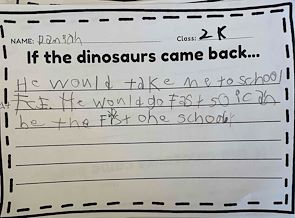 NAME: Danish Class: 2K
If the dinosaurs came back...
He would take me to school
He would go Fast so i can
be the FiSt one school